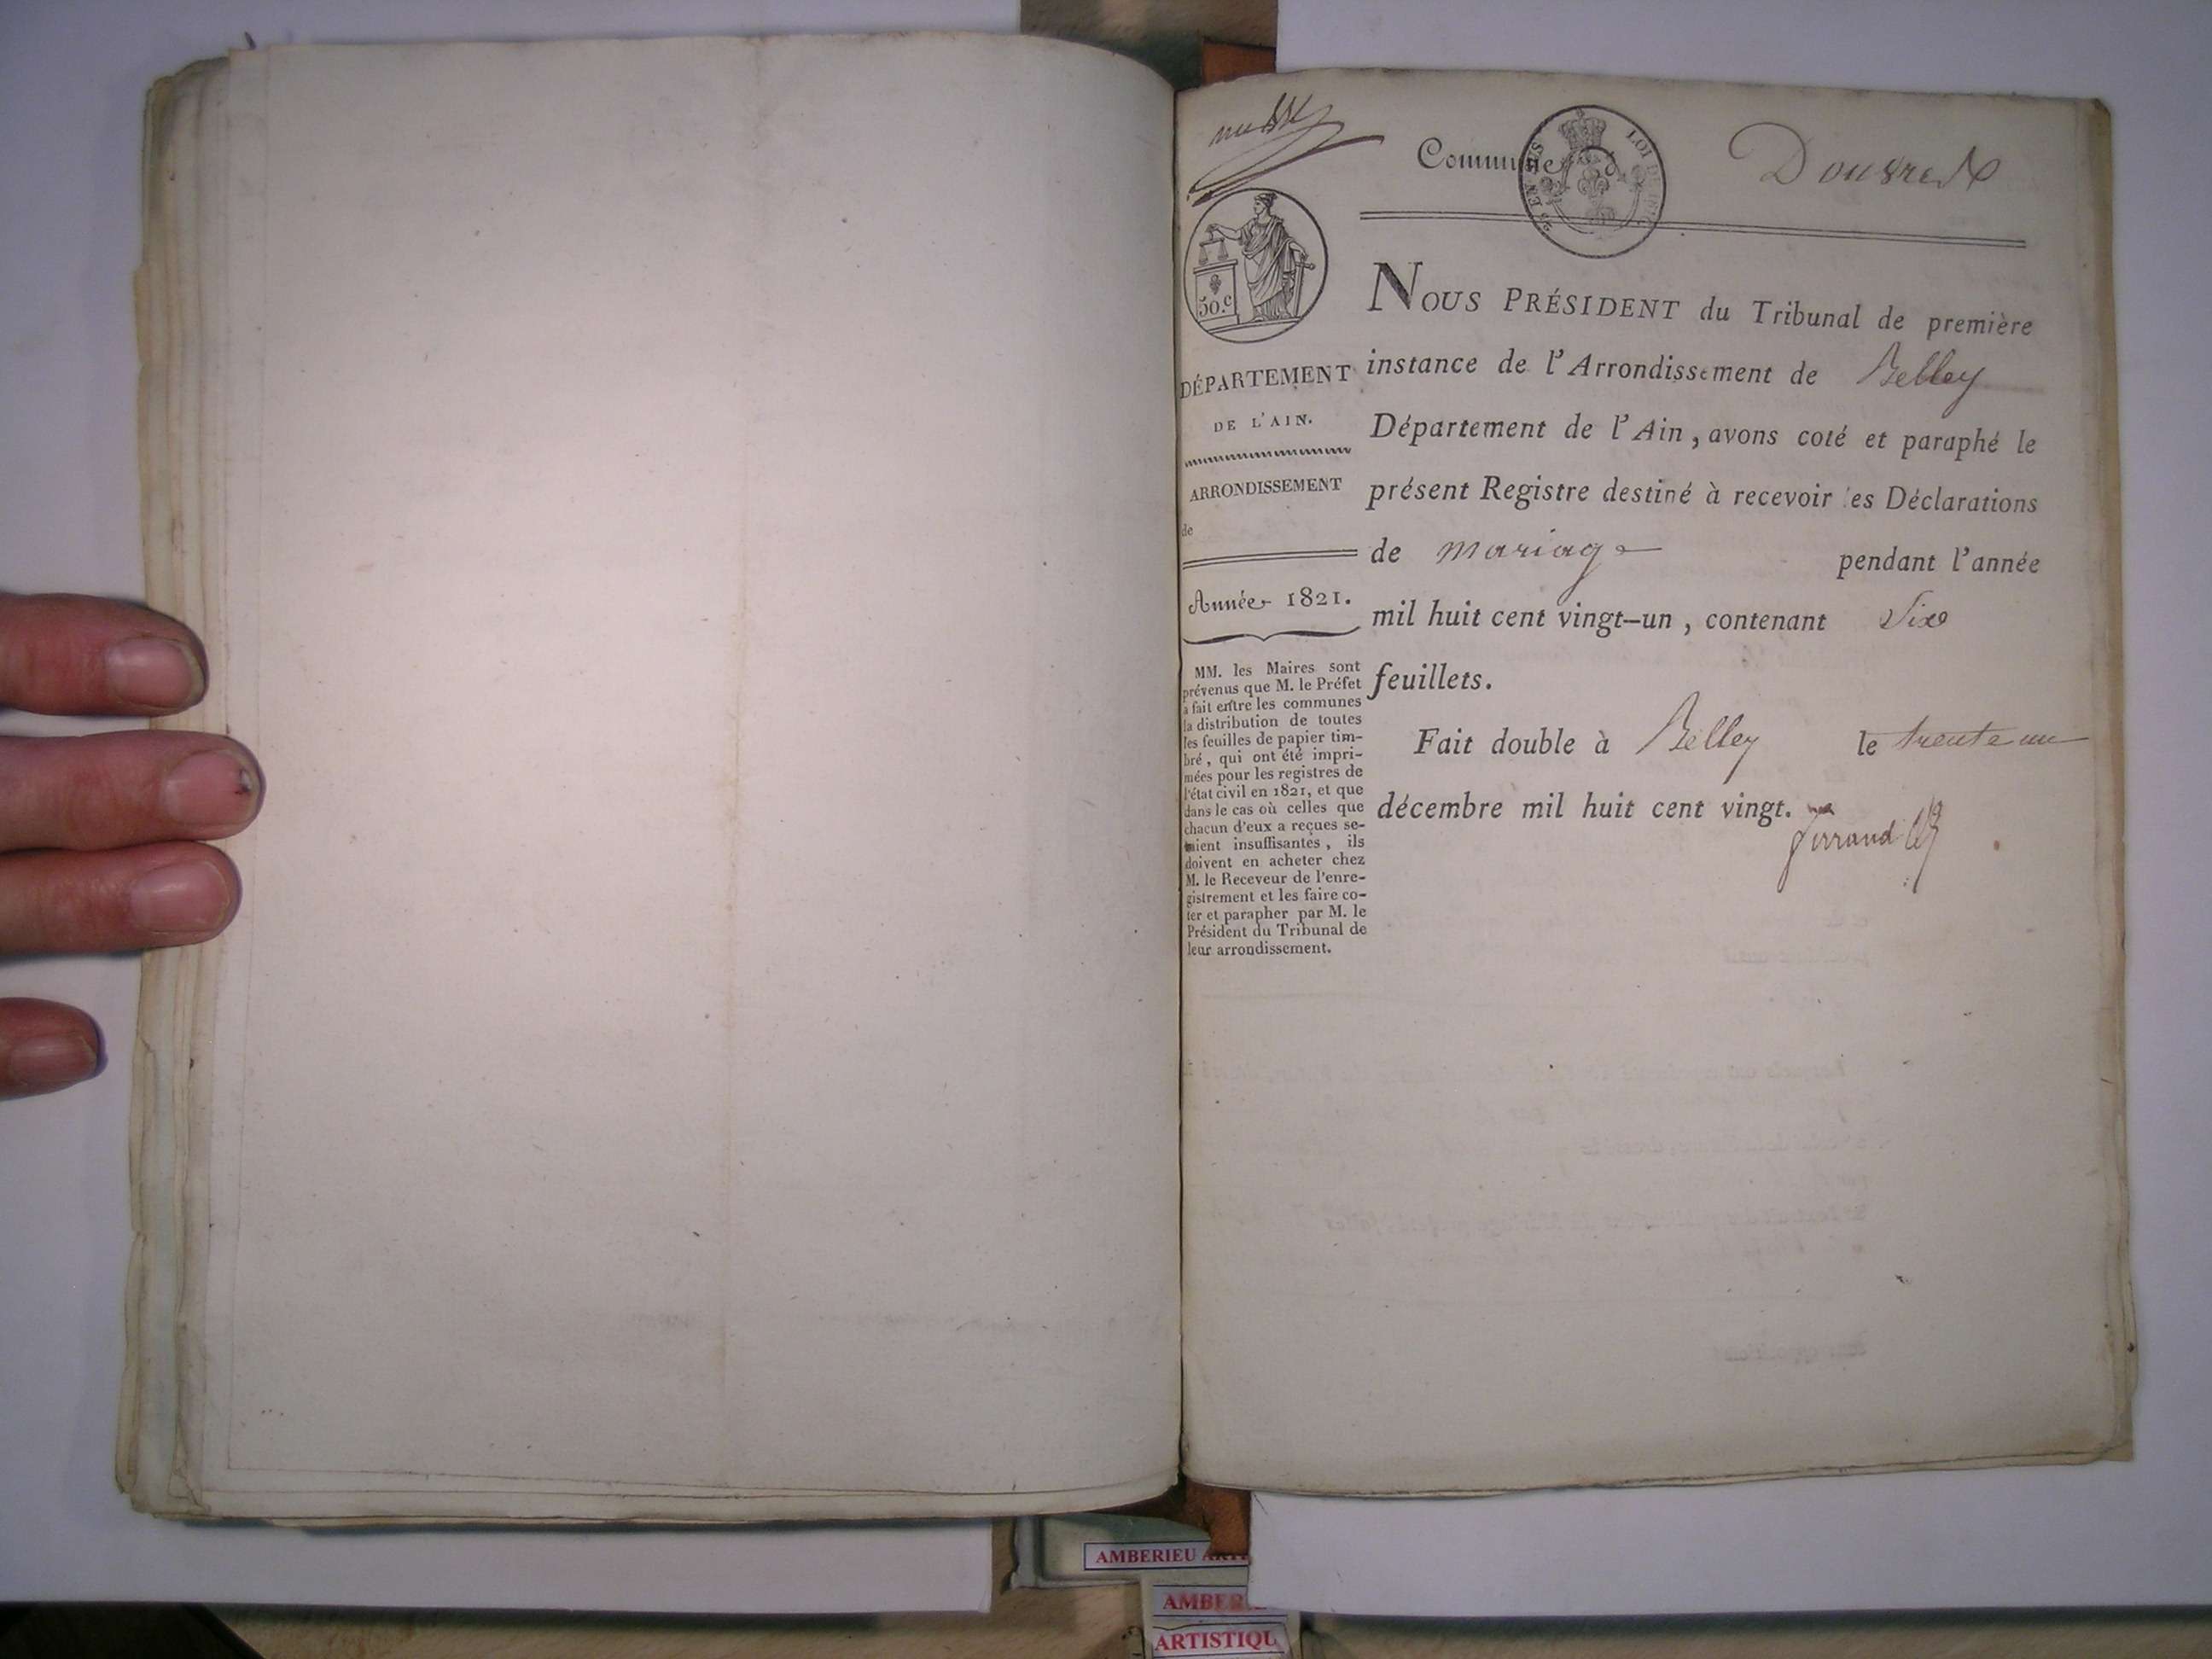 Commune d Douvres
LOI DE 1816
50.c
DÉPARTEMENT
DE L'AIN.
ARRONDISSEMENT
de
Année 1821.
MM. les Maires sont
prévenus que M. le Préfet
a fait entre les communes
la distribution de toutes
les feuilles de papier tim-
bré, qui ont été impri-
mées pour les registres de
l'état civil en 1821, et que
dans le cas où celles que
chacun d'eux a reçues se-
raient insuffisantes, ils
doivent en acheter chez
M. le Receveur de l'enre-
gistrement et les faire co-
ter et parapher par M. le
Président du Tribunal de
leur arrondissement.
NOUS PRÉSIDENT du Tribunal de première
instance de l'Arrondissement de Belley
Département de l'Ain, avons coté et paraphé le
présent Registre destiné à recevoir les Déclarations
de mariage pendant l'année
mil huit cent vingt-un, contenant Six
feuillets.
Fait double à Belley le trente un
décembre mil huit cent vingt.
AMBERIEU ARTI
AMBERI
ARTISTIQU